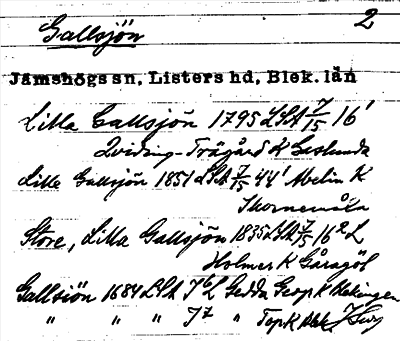 2
Gallsjön
Jämshögs sn, Listers hd, Blek. län
Lilla Gallsjön 1795 LSA 7/15 16'
Qviding-Trägård K Geslunda
Lille Gallsjön 1851 LSA 7/15 44' Abelin K
Thornemåla
Store, Lilla Gallsjön 1835 LSA 7/15 16² L
Holmer K Gåragöl
Gallsiön 1684 LSA J⁶ L Gedda Geogr K Blekingen
" " " J7 " Top K Blek